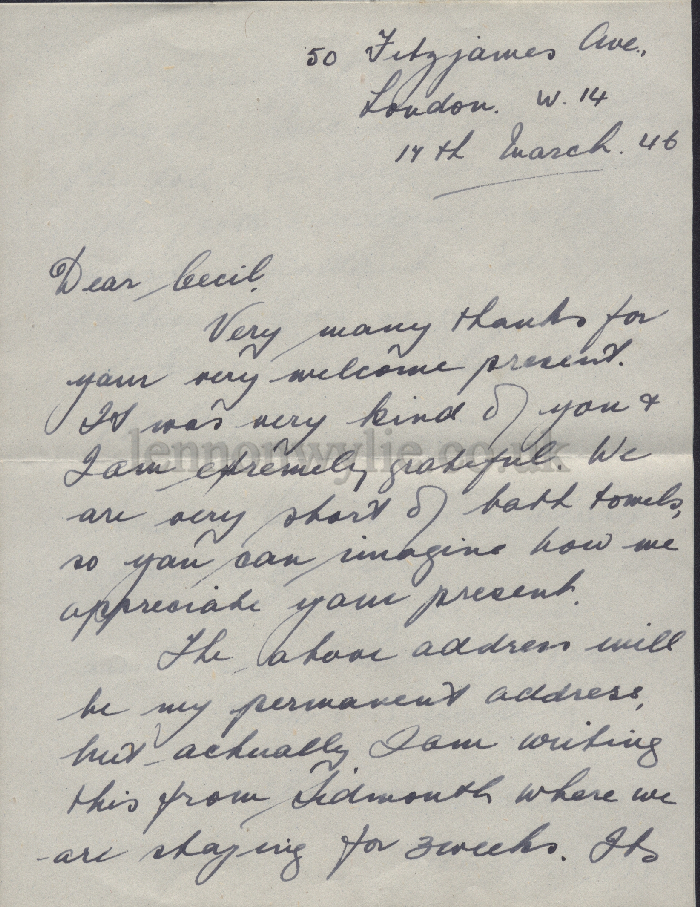 50 Fitzjames Ave.,
London. W. 14
17th March. 46
Dear Cecil.
Very many thanks for
your very welcome present.
It was very kind of you &
I am extremely grateful. We
are very short of bath towels,
so you can imagine how we
appreciate your present.
The above address will
be my permanent address,
but actually I am writing
this from Sidmouth where we
are staying for 3 weeks. Its
lennonwylie.co.uk